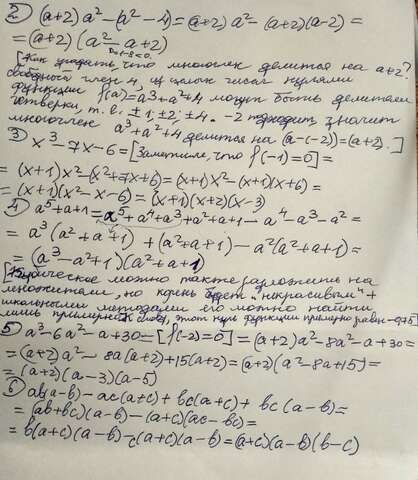 ② (a+2)a² - (a² - 4) = (a+2)a² - (a+2)(a-2) =
= (a+2)(a² - a + 2)
D=1-8<0
[Как угадать, что многочлен делится на a+2?
Свободный член 4, целыми нулями
функции f(a) = a³+a²+4 могут быть делители
четверки, т.е. ±1; ±2; ±4. -2 подходит, значит
многочлен a³+a²+4 делится на (a-(-2)) = (a+2).]
3) x³ - 7x - 6 = [Заметили, что f(-1) = 0] =
= (x+1)x² - (x²+7x+6) = (x+1)x² - (x+1)(x+6) =
= (x+1)(x² - x - 6) = (x+1)(x+2)(x-3)
4) a⁵+a+1 = a⁵+a⁴+a³+a²+a+1 - a⁴ - a³ - a² =
= a³(a²+a+1) + (a²+a+1) - a²(a²+a+1) =
= (a³ - a² + 1)(a² + a + 1)
[Кубическое можно также разложить на
множители, но корень будет "некрасивым" +
школьными методами его можно найти
лишь примерно. К слову, этот нуль функции примерно равен -0,75]
5) a³ - 6a² - a + 30 = [f(-2) = 0] = (a+2)a² - 8a² - a + 30 =
= (a+2)a² - 8a(a+2) + 15(a+2) = (a+2)(a² - 8a + 15) =
= (a+2)(a-3)(a-5)
6) ab(a-b) - ac(a+c) + bc(a+c) + bc(a-b) =
= (ab+bc)(a-b) - (a+c)(ac-bc) =
= b(a+c)(a-b) - c(a+c)(a-b) = (a+c)(a-b)(b-c)